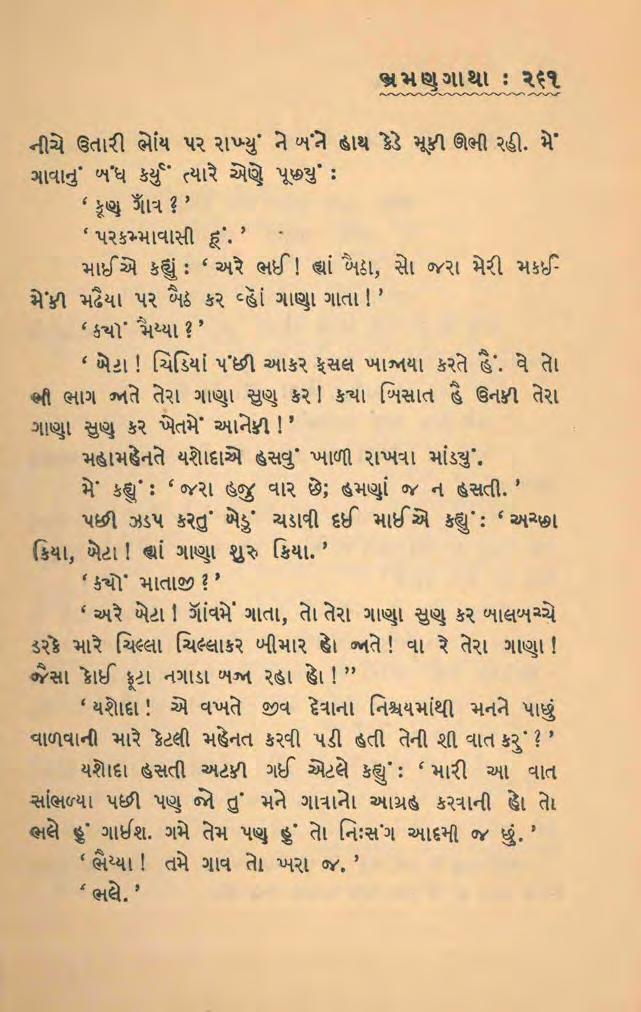 ભ્રમણગાથા : ૨૬૧
નીચે ઉતારી ભોંય પર રાખ્યું ને બંને હાથ કેડે મૂકી ઊભી રહી. મેં
ગાવાનું બંધ કર્યું ત્યારે એણે પૂછ્યું :
‘ કૂણ ગાઁત્ર ? ’
‘ પરકમ્માવાસી હૂં. ’
માઈએ કહ્યું : ‘ અરે ભઈ ! હ્યાં બૈઠા, સો જરા મેરી મકઈ-
મેંકી મઢૈયા પર બૈઠ કર વ્હાઁ ગાણા ગાતા ! ’
‘ ક્યોં મૈય્યા ? ’
‘ બેટા ! ચિડિયાં પંછી આકર ફસલ ખાજાયા કરતે હૈં. વે તો
ભી ભાગ જાતે તેરા ગાણા સુણ કર ! ક્યા બિસાત હૈ ઉનકી તેરા
ગાણા સુણ કર ખેતમેં આનેકી ! ’
મહામહેનતે યશોદાએ હસવું ખાળી રાખવા માંડ્યું.
મેં કહ્યું : ‘ જરા હજુ વાર છે; હમણાં જ ન હસતી. ’
પછી ઝડપ કરતું બેડું ચડાવી દઈ માઈએ કહ્યું : ‘ અચ્છા
કિયા, બેટા ! હ્યાં ગાણા શુરુ કિયા. ’
‘ ક્યોં માતાજી ? ’
‘ અરે બેટા ! ગાઁવમેં ગાતા, તો તેરા ગાણા સુણ કર બાલબચ્ચે
ડરકે મારે ચિલ્લા ચિલ્લાકર બીમાર હો જાતે ! વા રે તેરા ગાણા !
જૈસા કોઈ ફૂટા નગાડા બજા રહા હો ! ”
‘ યશોદા ! એ વખતે જીવ દેવાના નિશ્ચયમાંથી મનને પાછું
વાળવાની મારે કેટલી મહેનત કરવી પડી હતી તેની શી વાત કરું ? ’
યશોદા હસતી અટકી ગઈ એટલે કહ્યું : ‘ મારી આ વાત
સાંભળ્યા પછી પણ જો તું મને ગાવાનો આગ્રહ કરવાની હો તો
ભલે હું ગાઈશ. ગમે તેમ પણ હું તો નિઃસંગ આદમી જ છું. ’
‘ ભૈય્યા ! તમે ગાવ તો ખરા જ. ’
‘ ભલે. ’